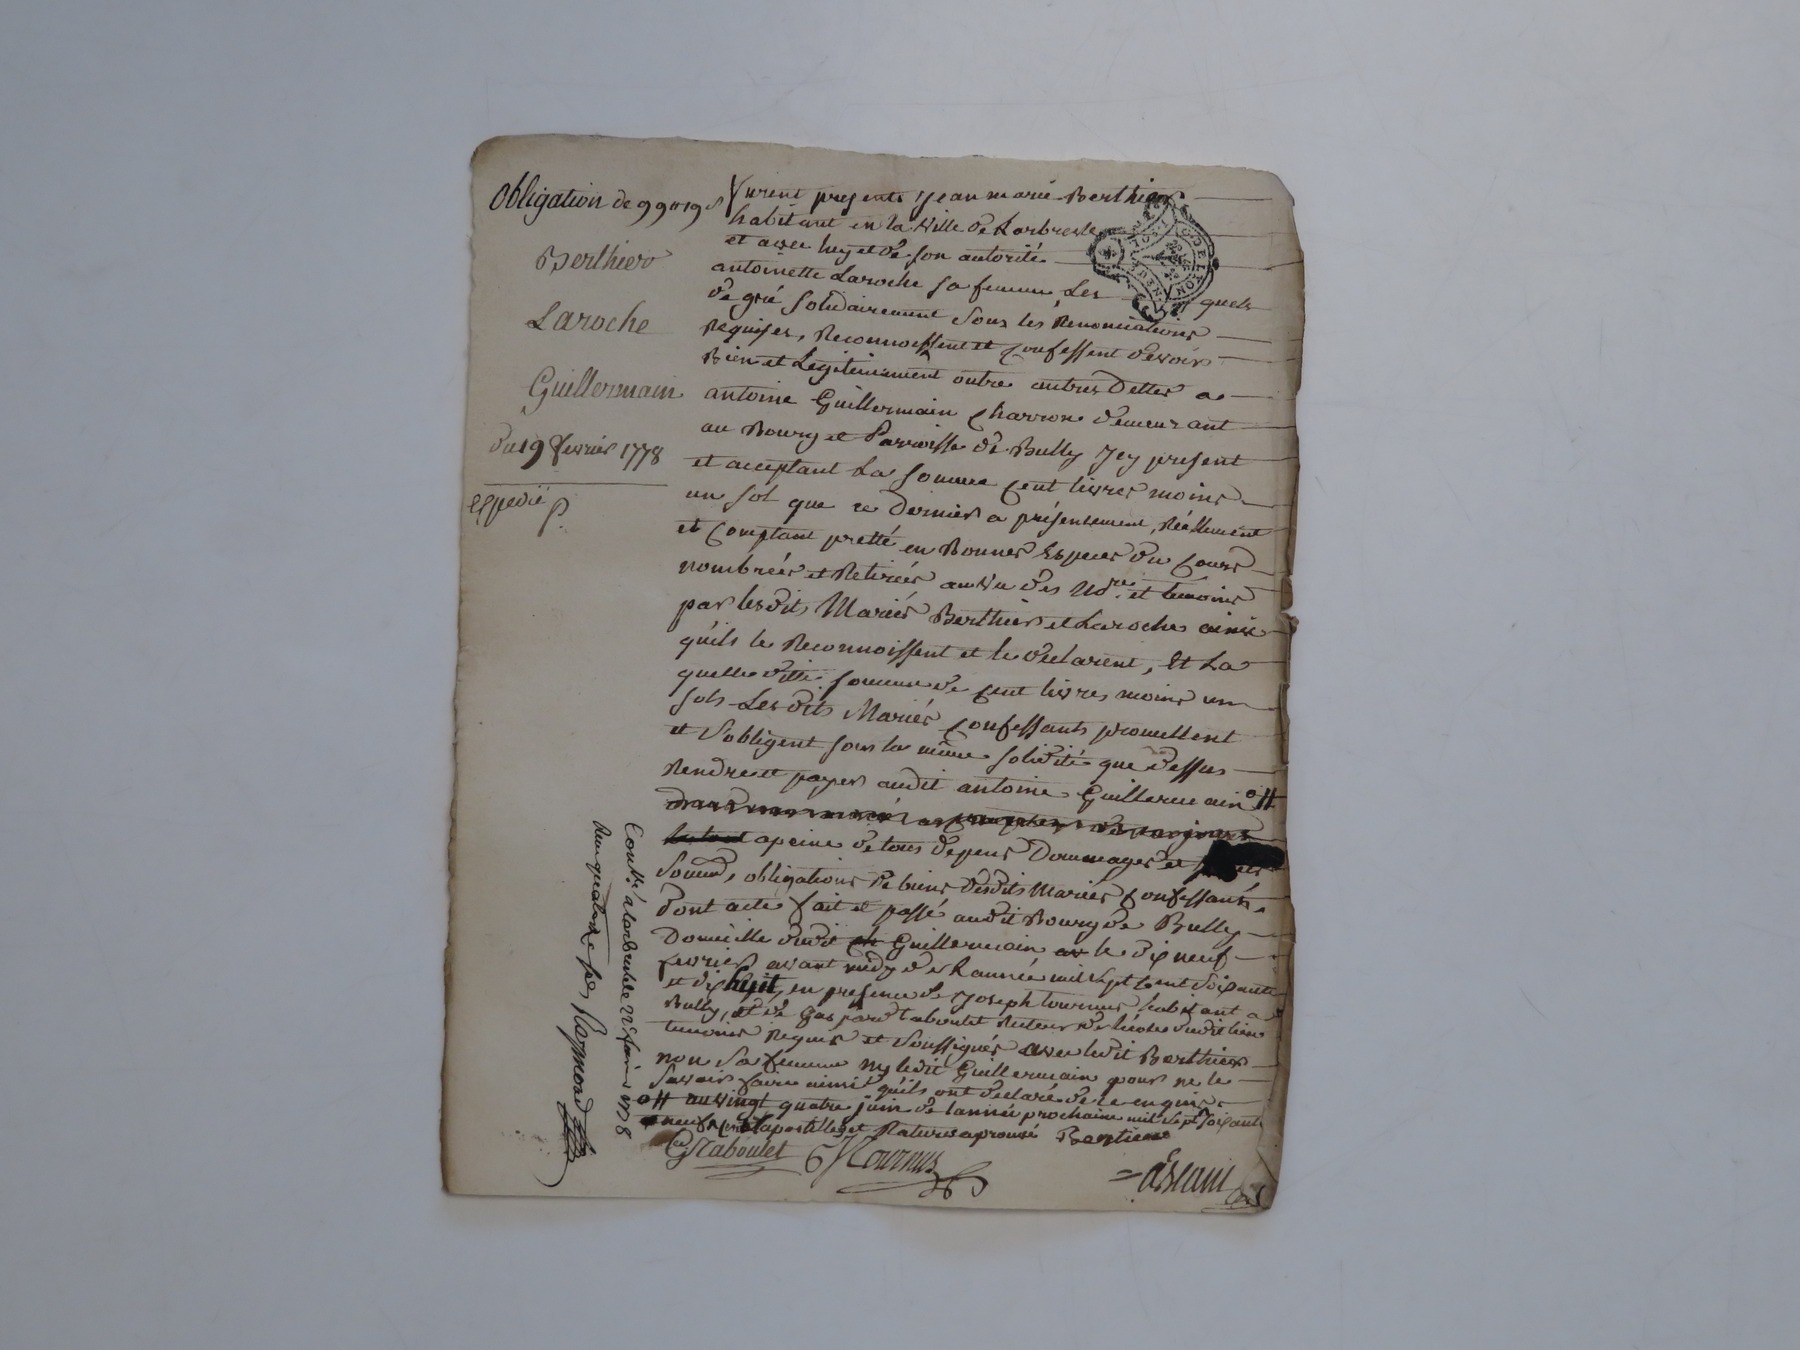 Obligation de 99 lt 19 s
Berthier
Laroche
Guillermain
du 19 fevrier 1778
expedié
furent presents jean marie Berthier
habitant en la ville de Larbresle
et avec luy et de son autorité
antoinette Laroche sa femme, Les quels
de gré solidairement sous les Renonciations
Requises, Reconnoissent et confessent devoir
Bien et Legitimement outre autres Dettes a
antoine Guillermain charron demeurant
au Bourg et Parroisse de Bully jcy present
et acceptant La somme cent livres moins
un sol que ce Dernier a présentement, Réellement
et comptant pretté en Bonnes Especes du cours
nombrées et Retirées au vu des Nore. et temoins
par lesdits Mariés Berthier et Laroche ainsi
qu'ils le Reconnoissent et le declarent, Et La
quelle ditte somme de cent livres moins un
sols Les dits Mariés confessants promettent
et s'obligent sous la même solidité que dessus
Rendre et payer audit antoine Guillermain
a peine de tous depens Dommages et
Soumis, obligations de biens desdits Mariés confessants,
Dont acte fait et passé audit Bourg de Bully
Domicille dudit Guillermain le dix neuf
fevrier avant midy de L'année mil sept cent soixante
et dix huit, en presence de joseph tournus habitant a
Bully, et de Gaspard taboulet Recteur de l'école dudit lieu
temoins Requis et soussignés avec ledit Berthier
non sa femme ny ledit Guillermain pour ne le
savoir faire ainsi qu'ils ont declaré de ce enquis.
au vingt quatre juin de l'année prochaine mil sept soixante
apostilles et Ratures aprouvé Bertier
G Taboulet J Tournus
Conllé a larbresle 22 fevrier 1778
Reçu quatorze sols Raymond